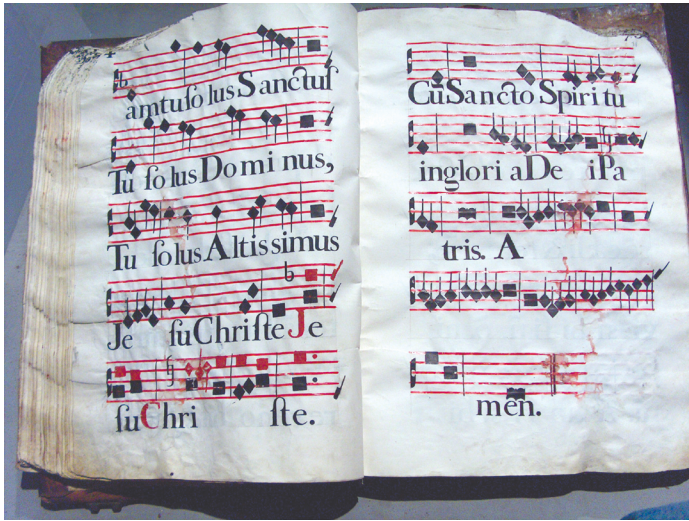 amtuſo lus Sanctuſ
Tu ſo lus Domi nus,
Tu ſolus Altis simus
Je ſuChriſte Je
ſuChri ſte.
Cũ Sancto Spiritu
inglori aDe iPa
tris. A
men.